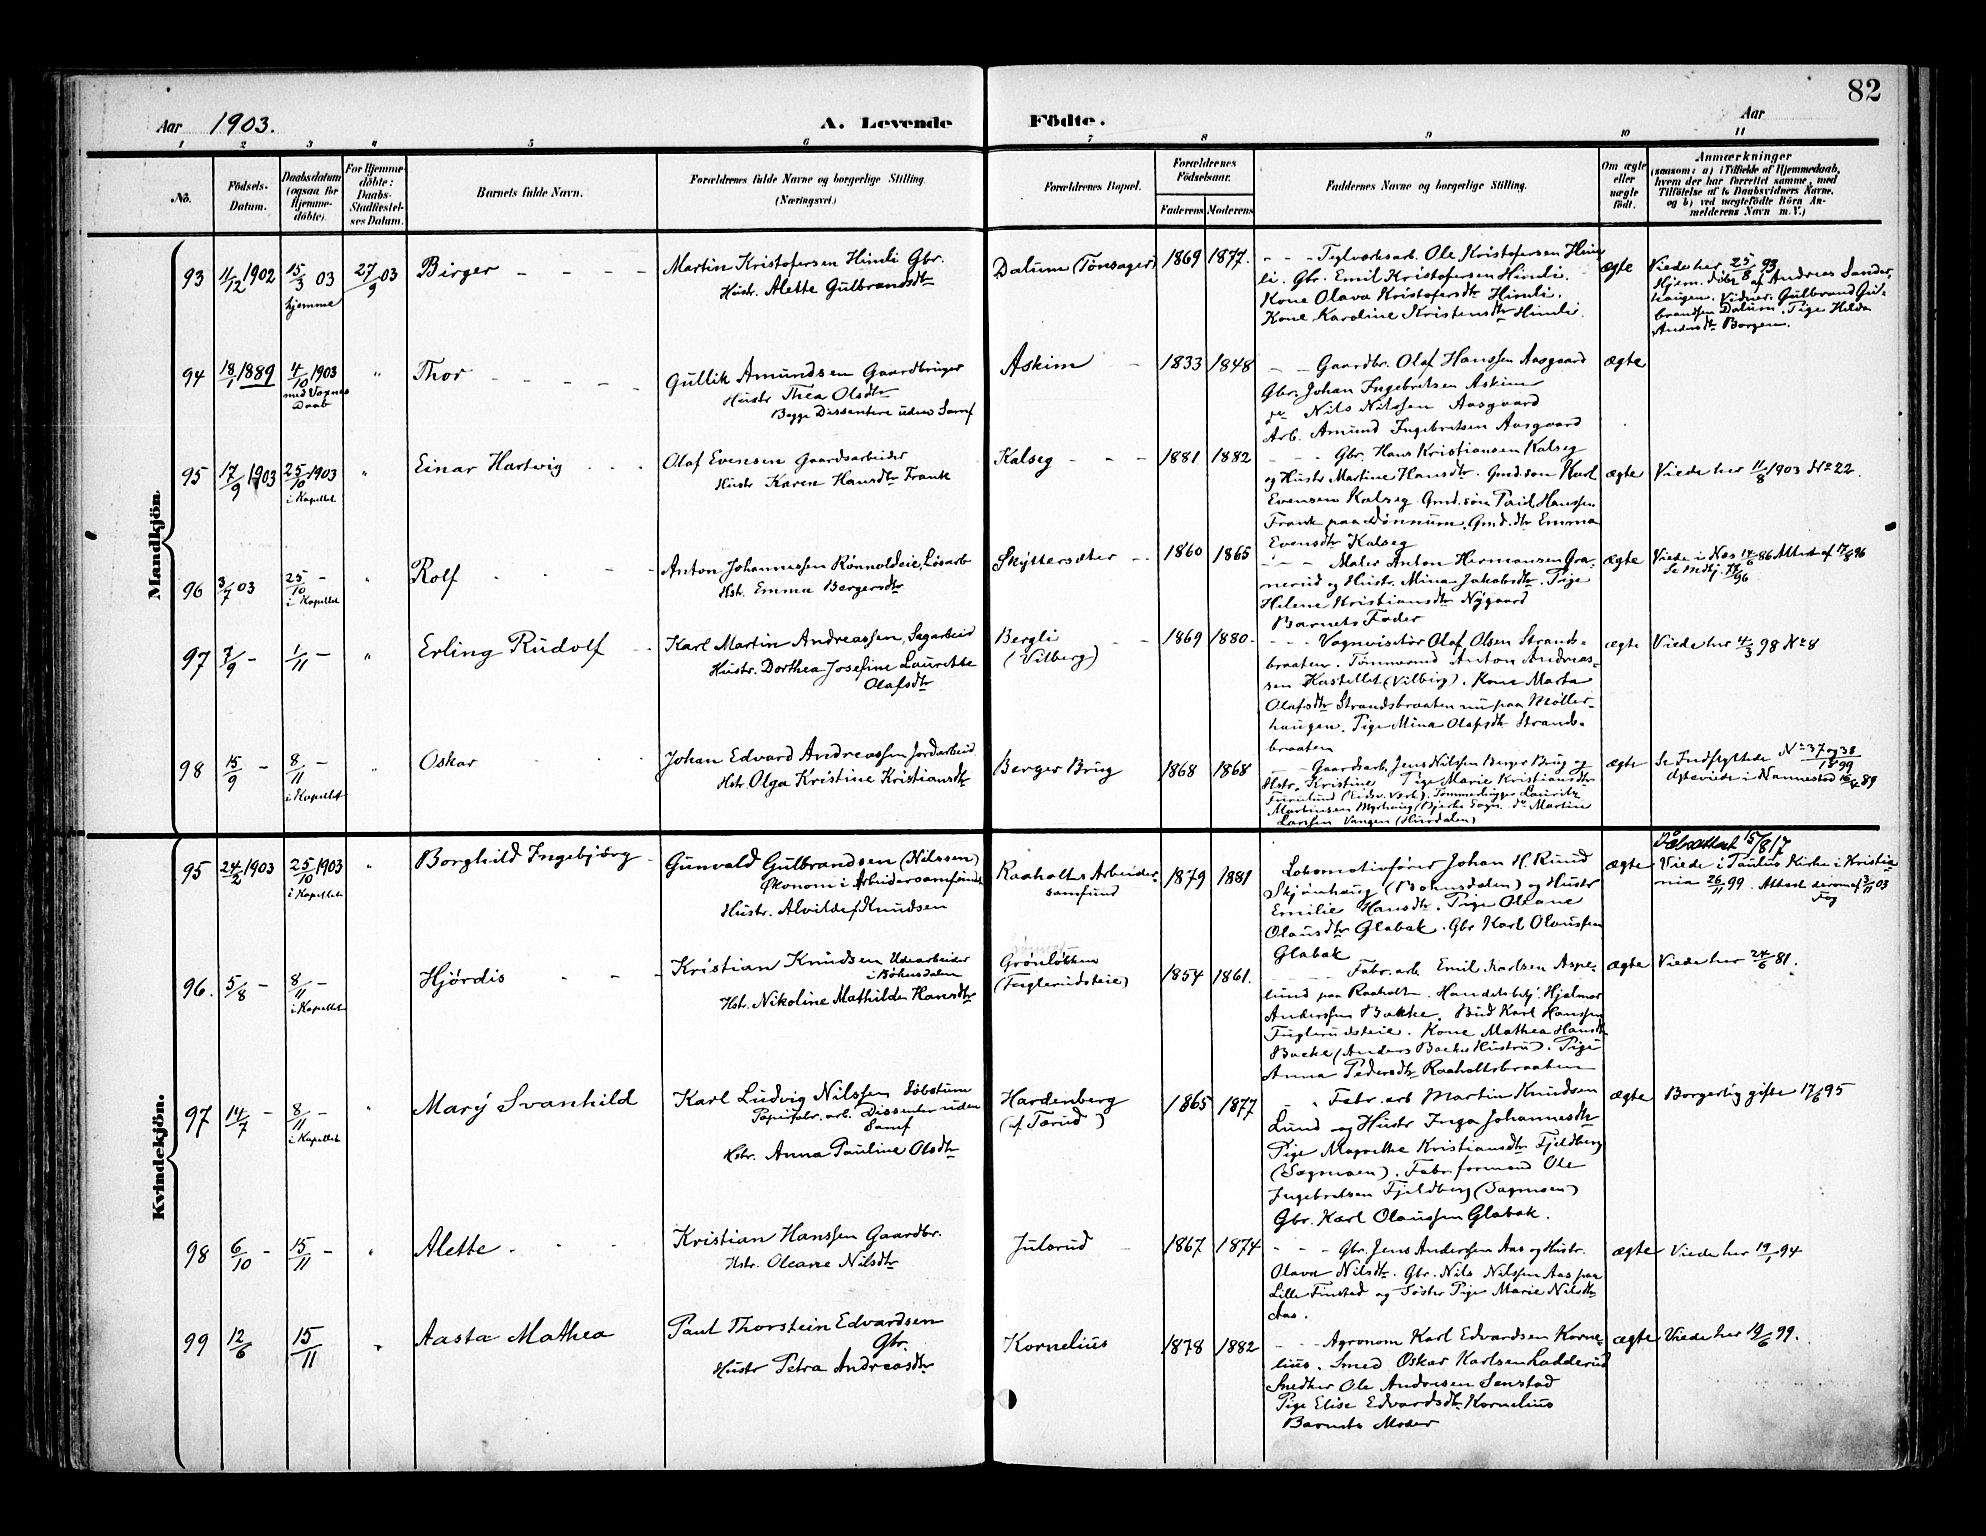 82
Aar 1903. A. Levende Födte. Aar
1 2 3 4 5 6 7 8 9 10 11
No. Födsels-Datum. Daabsdatum (ogsaa for Hjemmedöbte). For Hjemmedöbte: Daabs-Stadfæstelses Datum. Barnets fulde Navn. Forældrenes fulde Navne og borgerlige Stilling. (Næringsvei.) Forældrenes Bopæl. Forældrenes Födselsaar. Faderens Moderens Faddernes Navne og borgerlige Stilling. Om ægte eller uægte födt. Anmærkninger
(saasom: a) i Tilfælde af Hjemmedaab, hvem der har forrettet samme, med Tilföielse af to Daabsvidners Navne, og b) ved uægtefödte Börn Anmelderens Navn m. V.)
Mandkjön.
93 11/12 1902 15/3 03 hjemme 27/9 03 Birger
Martin Kristofersen Himli Gbr.
Hustr. Alette Gulbrandsdtr
Dalum (Tønsager) 1869 1877.
Teglværksarb. Ole Kristofersen Him
li. Gbr. Emil Kristofersen Himli.
Kone Olava Kristofersdtr Himli.
Kone Karoline Kristensdtr Himli.
ægte
Viede her 25/8 93
Hjem. døbt af Andreas Sander
haugen. Vidner. Gulbrand Gul-
brandsen Dalum. Pige Hilda
Andersdtr Borgen.
94 18/1 1889 4/10 1903 med Voxnes Daab " Thor
Gullik Amundsen Gaardbruger
Hustr Thea Olsdtr
Begge Dissentere uden Samf
Askim 1833 1848
Gaardbr. Olaf Hanssen Aasgaard
Gbr. Johan Ingebretsen Askim
do Nils Nilssen Aasgaard
Arb. Amund Ingebretsen Aasgaard
ægte
95 17/9 1903 25/10 1903 i Kapellet " Einar Hartvig
Olaf Evensen Gaardsarbeider
Hustr Karen Hansdtr Frank
Kalseg 1881 1882
Gbr. Hans Kristiansen Kalseg
og Hustr Martine Hansdtr. Gmd.søn Karl
Evensen Kalseg Gmd.søn Paul Hanssen
Frank paa Dønnum. Gmd.dtr Emma
Evensdtr Kalseg
ægte Viede her 11/8 1903 No 22.
96 3/7 03 25/10 - i Kapellet " Rolf
Anton Johannessen Rønnoldeie, Løsarb
Hstr. Emma Bergersdtr
Skyttersæter 1860 1865
Maler Anton Hermansen Gra-
nerud og Hustr. Mina Jakobsdtr. Pige
Helene Kristiansdtr Nygaard
Barnets Fader
ægte Viede i Næs 14/6 86 Attest af 17/8 96
97 3/9 - 1/11 - " Erling Rudolf
Karl Martin Andreassen, Sagarbeid
Hustr. Dorthea Josefine Laurette
Olafsdtr
Bergli
(Vilberg)
1869 1880.
Vognvisitør Olaf Olsen Strands-
braaten. Tømmermd Anton Andreas-
sen Kastellet (Vilberg). Kone Marta
Olafsdtr Strandsbraaten nu paa Møller-
haugen. Pige Mina Olafsdtr Strands-
braaten
ægte Viede her 4/3 98 No 8
98 15/9 - 8/11 - i Kapellet Oskar
Johan Edvard Andreassen Jordarbeid
Hstr Olga Kristine Kristiansdtr
Berger Brug 1868 1868
Gaardsarb. Jens Nilssen Berger Brug og
Hstr. Kristine. Pige Marie Kristiansdtr
Furulund (Eidsv. Værk). Tømmerhugger Lauritz
Martinsen Myrhaug (Bjerke Sogn. do Martin
Larssen Vangen (Hurdalen)
ægte Se Indflyttede No 37 og 38 1899
Ægteviede i Nannestad 89
Kvindekjön.
95 24/2 1903 25/10 1903 i Kapellet " Borghild Ingebjørg
Gunvald Gulbrandsen (Nilssen)
Økonom i Arbeidersamfundet
Hustr. Alvilde f. Knudsen
Raaholts Arbeider-
samfund
1879 1881
Lokomotivfører Johan H. Ruud
Skjønhaug (Bohnsdalen) og Hustr
Emilie Hansdtr. Pige Oleane
Olausdtr Glabak. Gbr Karl Olaussen
Glabak
ægte
Dåbsattest 15/8 17
Viede i Paulus Kirke i Kristia
nia 26/11 99. Attest derom af 3/11 03
Fog
96. 5/8 - 8/11 - i Kapellet Hjørdis
Kristian Knudsen Udearbeider
i Bøhnsdalen
Hstr. Nikoline Mathilde Hansdtr
Grønløkken
(Fuglerudseie)
1854 1861.
Fabr. arb. Emil Karlsen Aspe-
lund paa Raaholt. Handelsbetj. Hjalmar
Anderssen Bakke. Bud Karl Hanssen
Fuglerudseie. Kone Mathea Hansdtr
Bakke (Anders Bakkes Hustru). Pige
Anna Pedersdtr Raaholtsbraaten
ægte Viede her 24/6 81.
97 14/7 - 8/11 - i Kapellet " Mary Svanhild
Karl Ludvig Nilssen Løbstum
Papirfabr. arb. Dissenter uden
Samf
Hstr. Anna Pauline Olsdtr
Hardenberg
(af Tærud)
1865 1877
Fabr. arb Martin Knudsen
Lund og Hustr Inga Johannesdtr
Pige Magrethe Kristiansdtr Fjeldberg
(Sagmoen). Fabr. formand Ole
Ingebretsen Fjeldberg (Sagmoen)
Gbr. Karl Olaussen Glabak.
ægte Borgerlig gifte 17/6 95
98 6/10 - 15/11 - " Alette
Kristian Hanssen Gaardbr.
Hstr. Oleane Nilsdtr
Julsrud 1867 1874
Gbr. Jens Anderssen Aas og Hustr.
Olava Nilsdtr. Gbr. Nils Nilssen Aas paa
Lille Finstad og Søster Pige Marie Nilsdtr
Aas.
ægte Viede her 19/1 94
99 12/6 15/11 " Aasta Mathea
Paul Thorstein Edvardsen
Gbr.
Hustr Petra Andreasdtr
Kornelius 1878 1882
Agronom Karl Edvardsen Korne-
lius. Smed Oskar Karlsen Ladderud
Snedker Ole Andersen Sønstad
Pige Elise Edvardsdtr Kornelius
Barnets Moder
ægte Viede her 19/6 99.